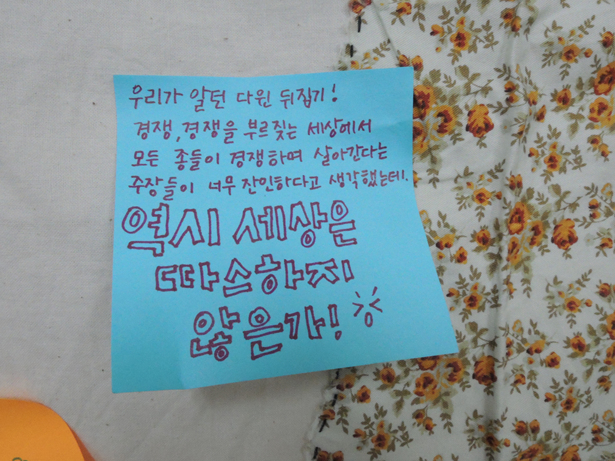 우리가 알던 다윈 뒤집기!
경쟁, 경쟁을 부르짖는 세상에서
모든 종들이 경쟁하며 살아간다는
주장들이 너무 잔인하다고 생각했는데.
역시 세상은
따스하지
않은가!